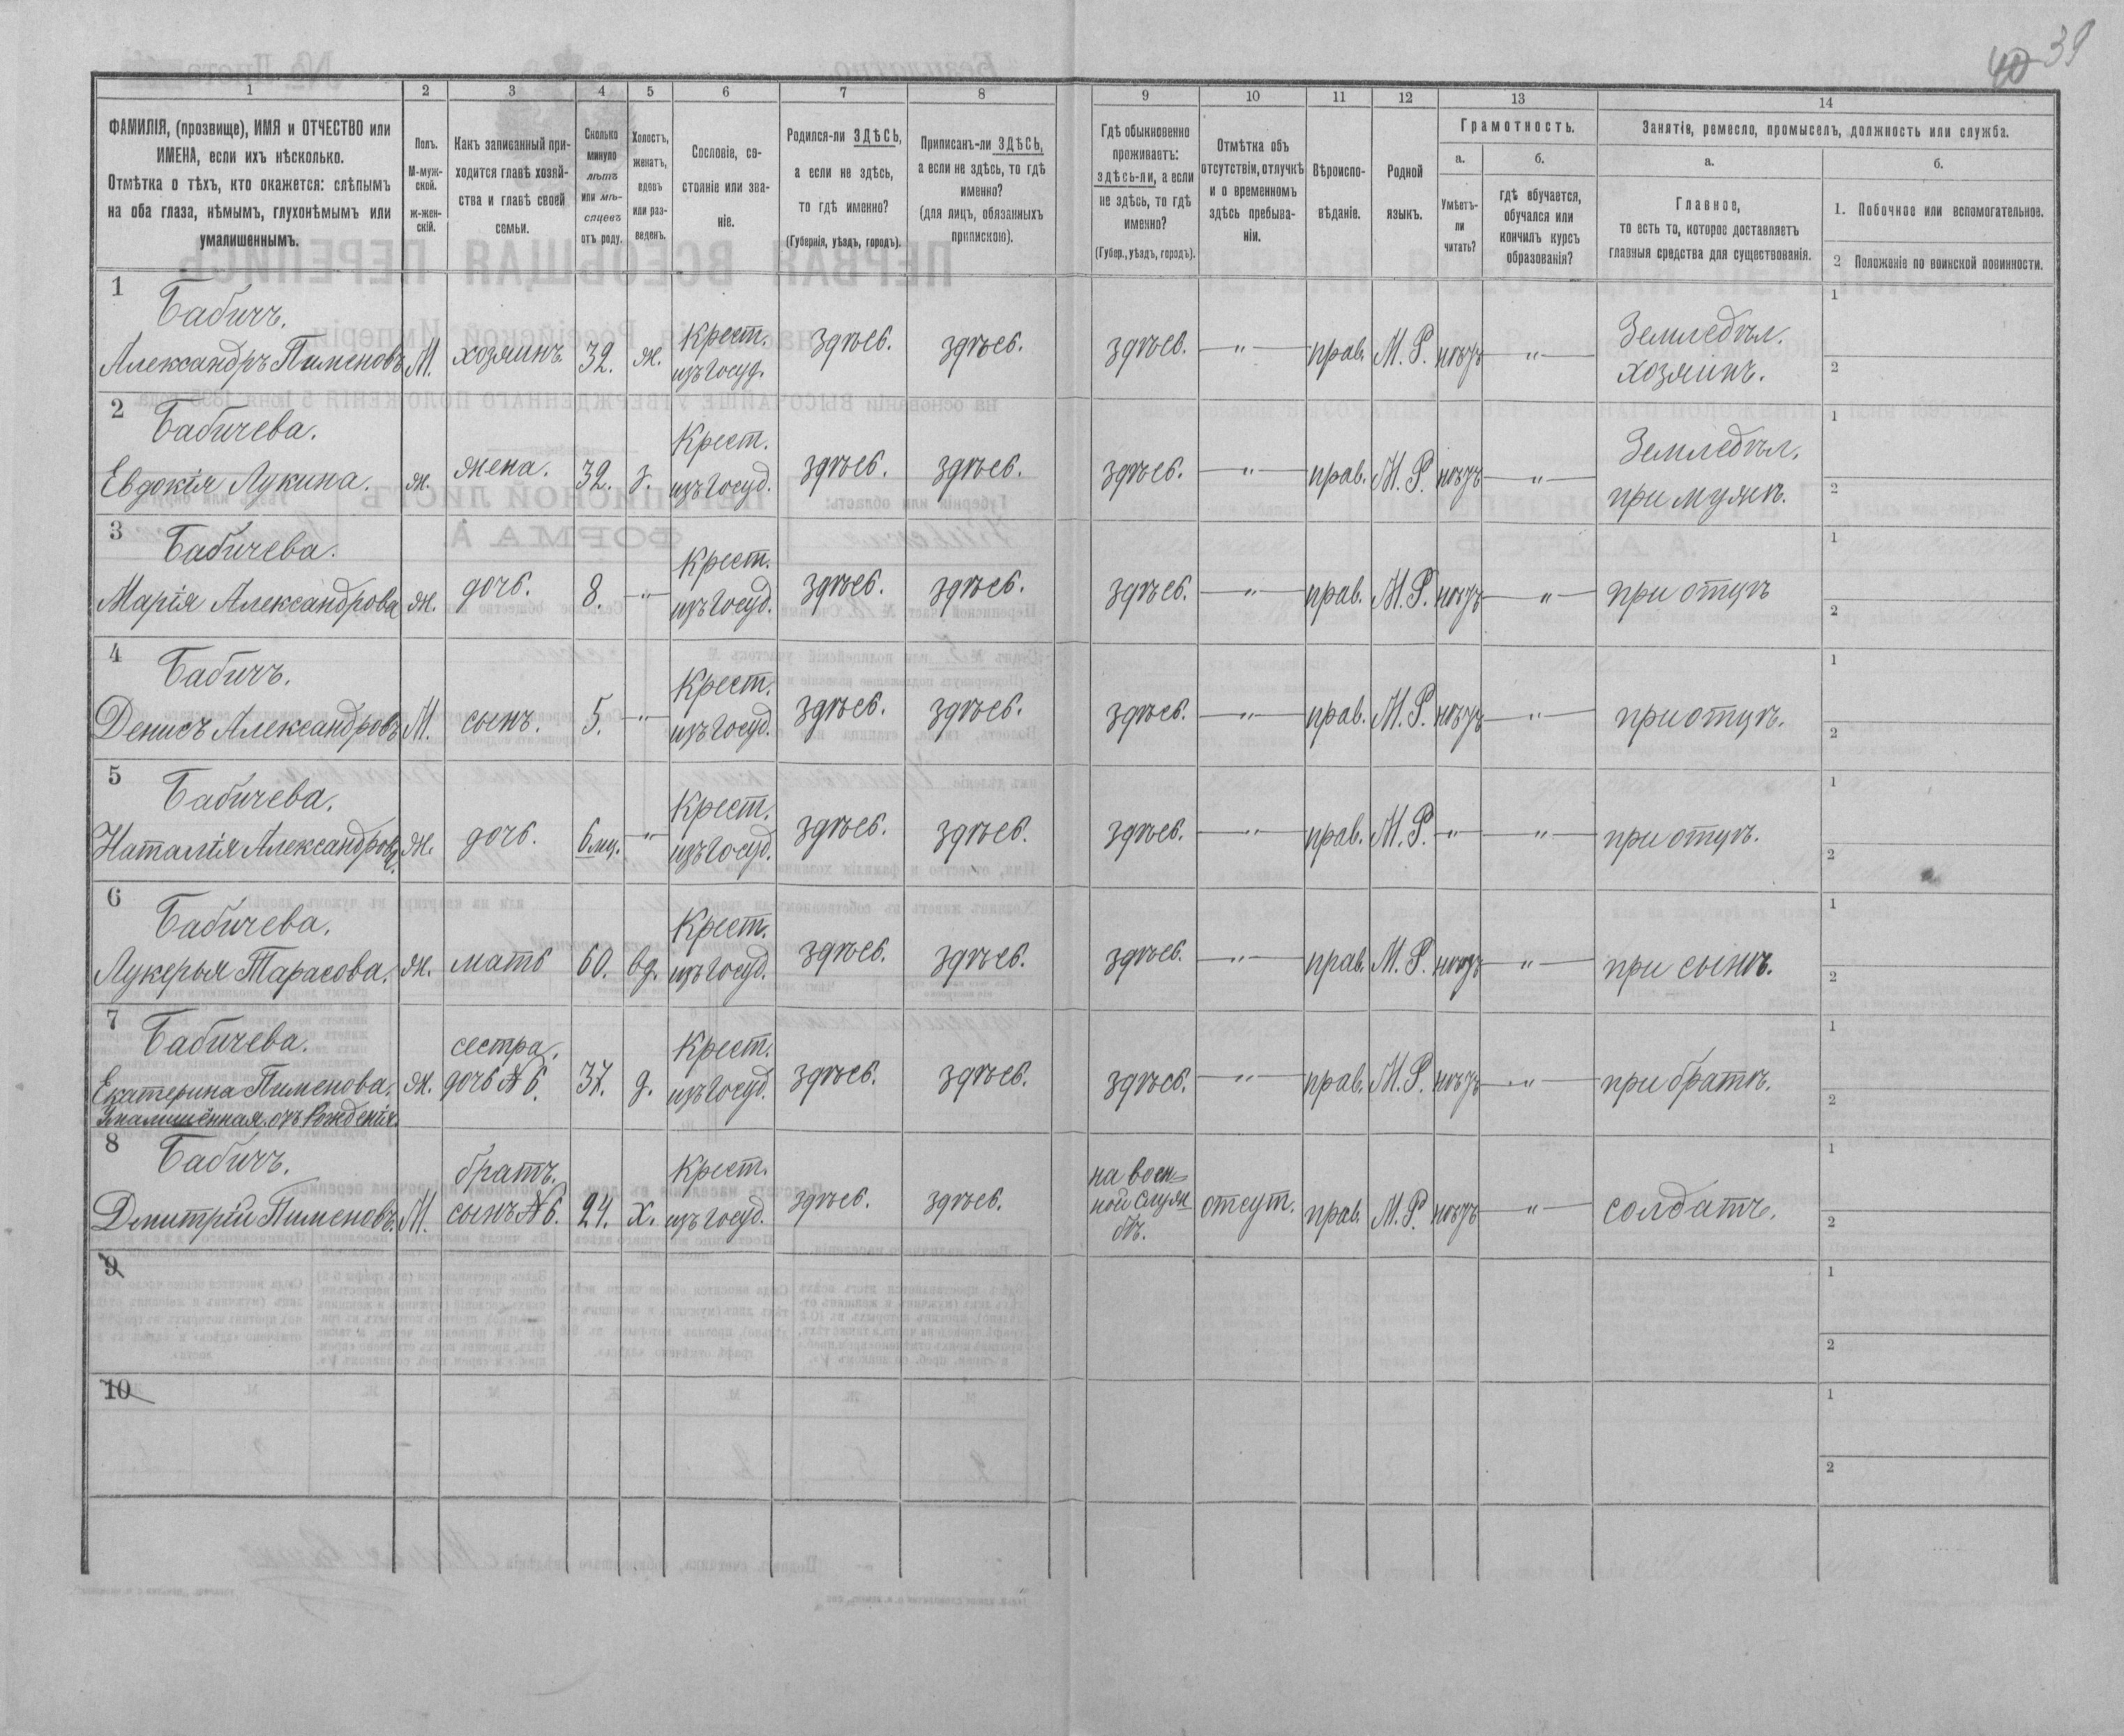 40 39
1 2 3 4 5 6 7 8 9 10 11 12 13 14
ФАМИЛІЯ, (прозвище), ИМЯ и ОТЧЕСТВО или
ИМЕНА, если ихъ нѣсколько.
Отмѣтка о тѣхъ, кто окажется: слѣпымъ
на оба глаза, нѣмымъ, глухонѣмымъ или
умалишеннымъ.
Полъ.
М-муж-
ской.
ж-жен-
скій.
Какъ записанный при-
ходится главѣ хозяй-
ства и главѣ своей
семьи.
Сколько
минуло
лѣтъ
или мѣ-
сяцевъ
отъ роду.
Холостъ,
женатъ,
вдовъ
или раз-
веденъ.
Сословіе, со-
стояніе или зва-
ніе.
Родился-ли ЗДѢСЬ,
а если не здѣсь,
то гдѣ именно?
(Губернія, уѣздъ, городъ).
Приписанъ-ли ЗДѢСЬ,
а если не здѣсь, то гдѣ
именно?
(для лицъ, обязанныхъ
припискою).
Гдѣ обыкновенно
проживаетъ:
здѣсь-ли, а если
не здѣсь, то гдѣ
именно?
(Губер., уѣздъ, городъ).
Отмѣтка объ
отсутствіи, отлучкѣ
и о временномъ
здѣсь пребыва-
ніи.
Вѣроиспо-
вѣданіе.
Родной
языкъ.
Грамотность.
а. б.
Умѣетъ-
ли
читать?
гдѣ обучается,
обучался или
кончилъ курсъ
образованія?
Занятіе, ремесло, промыселъ, должность или служба.
а. б.
Главное,
то есть то, которое доставляетъ
главныя средства для существованія.
1. Побочное или вспомогательное.
2 Положеніе по воинской повинности.
1 Бабичъ. Крест. Земледѣл. 1
Александръ Пименовъ М. хозяинъ 32. ж. изъ Госуд. здѣсь. здѣсь. здѣсь. —"— прав. М. Р. нѣтъ —"— хозяинъ. 2
2 Бабичева. Крест. Земледѣл. 1
Евдокія Лукина. ж. жена. 32. з. изъ Госуд. здѣсь. здѣсь. здѣсь. —"— прав. М. Р. нѣтъ —"— при мужѣ. 2
3 Бабичева. Крест. 1
Марія Александрова ж. дочь. 8. —"— изъ Госуд. здѣсь. здѣсь. здѣсь. —"— прав. М. Р. нѣтъ —"— при отцѣ 2
4 Бабичъ. Крест. 1
Денисъ Александровъ М. сынъ. 5. —"— изъ Госуд. здѣсь. здѣсь. здѣсь. —"— прав. М. Р. нѣтъ —"— при отцѣ. 2
5 Бабичева. Крест. 1
Наталія Александрова. ж. дочь. 6 мц. —"— изъ Госуд. здѣсь. здѣсь. здѣсь. —"— прав. М. Р. —"— —"— при отцѣ. 2
6 Бабичева. Крест. 1
Лукерья Тарасова. ж. мать 60. вд. изъ Госуд. здѣсь. здѣсь. здѣсь. —"— прав. М. Р. нѣтъ —"— при сынѣ. 2
7 Бабичева. сестра. Крест. 1
Екатерина Пименова. ж. дочь № 6. 37. д. изъ Госуд. здѣсь. здѣсь. здѣсь. —"— прав. М. Р. нѣтъ —"— при братѣ. 2
Умалишённая отъ Рожденія.
8 Бабичъ. братъ. Крест. на воен- 1
Дмитрій Пименовъ. М. сынъ № 6. 24. х. изъ Госуд. здѣсь. здѣсь. ной служ отсут. прав. М. Р. нѣтъ —"— солдатъ. 2
бѣ.
9 1
2
10 1
2